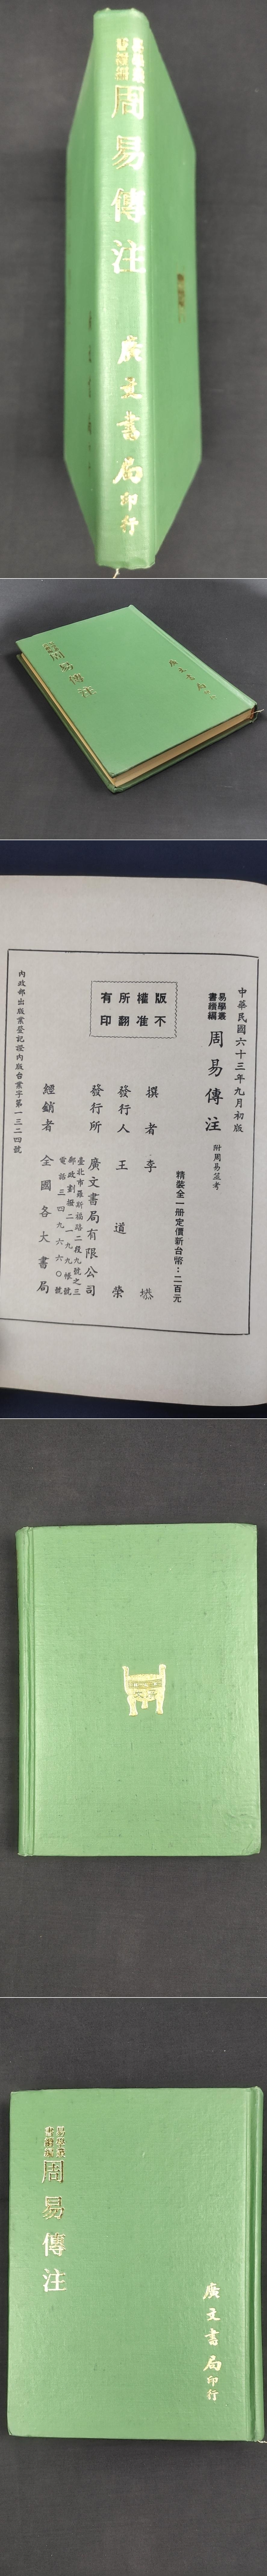 易學叢
書續編
周易傳注
廣文書局印行
周易傳注
廣文書局印行
中華民國六十三年九月初版
易學叢
書續編
周易傳注
附周易筮考
精裝全一册定價新台幣：二百元
版權所有
不准翻印
撰者 李塨
發行人 王道榮
發行所 廣文書局有限公司
臺北市羅斯福路二段九號之三
郵政劃撥二一九九帳號
電話三四九六六〇號
經銷者 全國各大書局
內政部出版業登記證內版台業字第一三二四號
易學叢
書續編
周易傳注
廣文書局印行